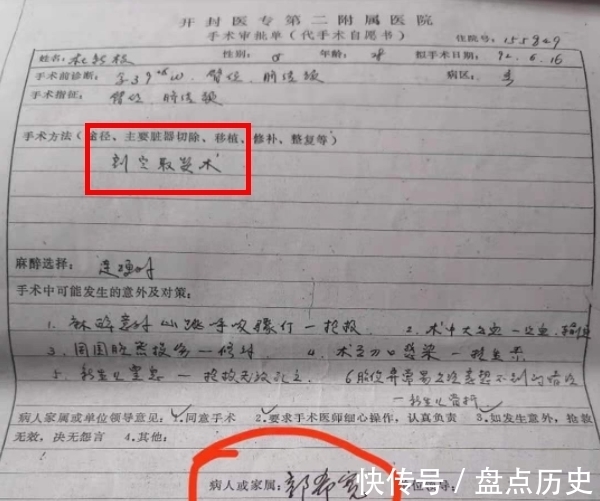 开封医专第二附属医院
手术审批单(代手术自愿书) 住院号:155849
姓名:杜新枝 性别:♀ 年龄:28 拟手术日期:92.6.16
手术前诊断:孕39⁺²W、臀位、脐绕颈 病区:
手术指征: 臀位、脐绕颈
手术方法(途径、主要脏器切除、移植、修补、整复等)
剖宫取婴术
麻醉选择:连硬外
手术中可能发生的意外及对策:
1. 麻醉意外心跳呼吸骤停一抢救 2. 术中大出血一止血、输血
3. 周围脏器损伤一修补 4. 术后刀口感染一抗生素
5. 新生儿窒息一抢救无效死亡
病人家属或单位领导意见:1.同意手术 2.要求手术医师细心操作,认真负责 3.如发生意外,抢救
无效,决无怨言 4.其他:
病人或家属:郭希宽 单位领导:
快传号/盘点历史